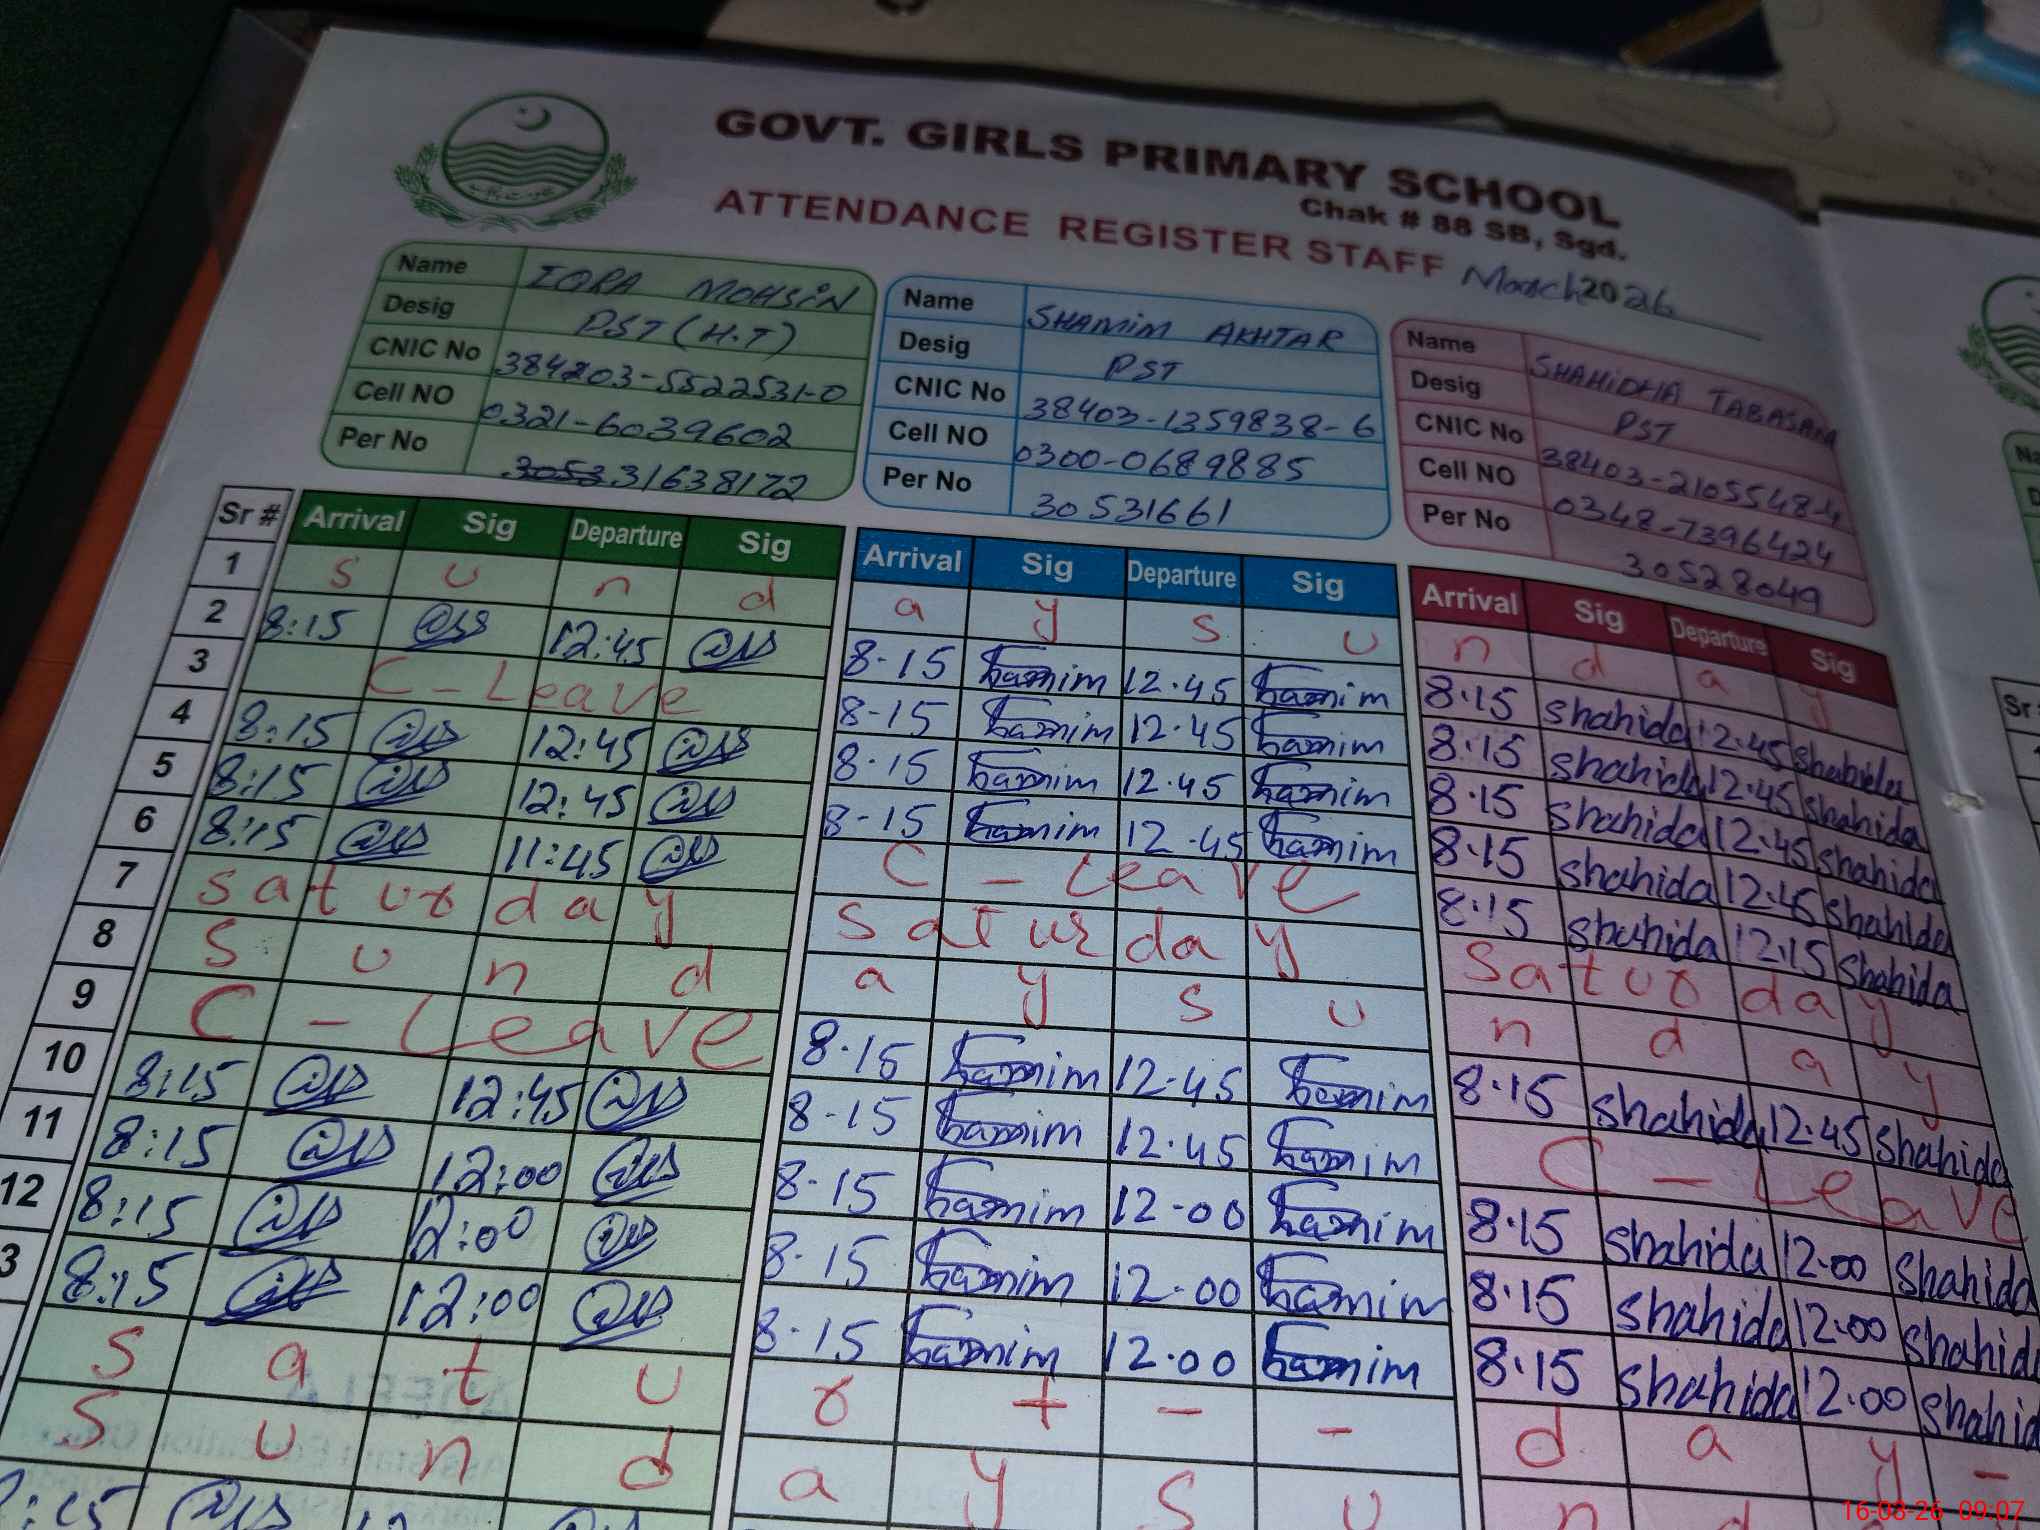 GOVT. GIRLS PRIMARY SCHOOL
Chak # 88 SB, Sgd.
ATTENDANCE REGISTER STAFF March 2026
Name IQRA MOHSIN
Desig PST (H.T)
CNIC No 384203-5522531-0
Cell NO 0321-6039602
Per No 31638172
Name SHAMIM AKHTAR
Desig PST
CNIC No 38403-1359838-6
Cell NO 0300-0689885
Per No 30531661
Name SHAHIDHA TABASAM
Desig PST
CNIC No 38403-2105548-4
Cell NO 0348-7396424
Per No 30528049
Sr # Arrival Sig Departure Sig Arrival Sig Departure Sig Arrival Sig Departure Sig
1 S u n d a y s u n d a y
2 8:15 12:45 8-15 Shamim 12.45 Shamim 8.15 shahida 12.45 shahida
3 C - Leave 8-15 Shamim 12.45 Shamim 8.15 shahida 12.45 shahida
4 8:15 12:45 8.15 Shamim 12.45 Shamim 8.15 shahida 12.45 shahida
5 8:15 12:45 8-15 Shamim 12.45 Shamim 8.15 shahida 12.45 shahida
6 8:15 11:45 C - Leave 8.15 shahida 12.15 shahida
7 Saturday Saturday Saturday
8 S u n d a y s u n d a y
9 C - Leave 8.15 Shamim 12.45 Shamim 8.15 shahida 12.45 shahida
10 8:15 12:45 8-15 Shamim 12.45 Shamim C - Leave
11 8:15 12:00 8-15 Shamim 12-00 Shamim 8.15 shahida 12.00 shahida
12 8:15 12:00 8-15 Shamim 12.00 Shamim 8.15 shahida 12.00 shahid
3 8:15 12:00 8-15 Shamim 12.00 Shamim 8.15 shahida 12.00 shahid
S a t u r + - - d a y -
S u n d a y s u n d
:15 12
Sr
16-03-26 09:07